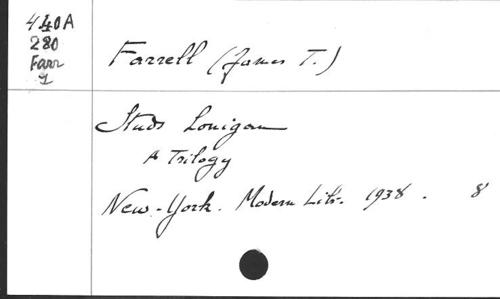 440A
280
Farr
1
Farrell (James T.)
Studs Lonigan
A Trilogy
New-York. Modern Libr. 1938. 8